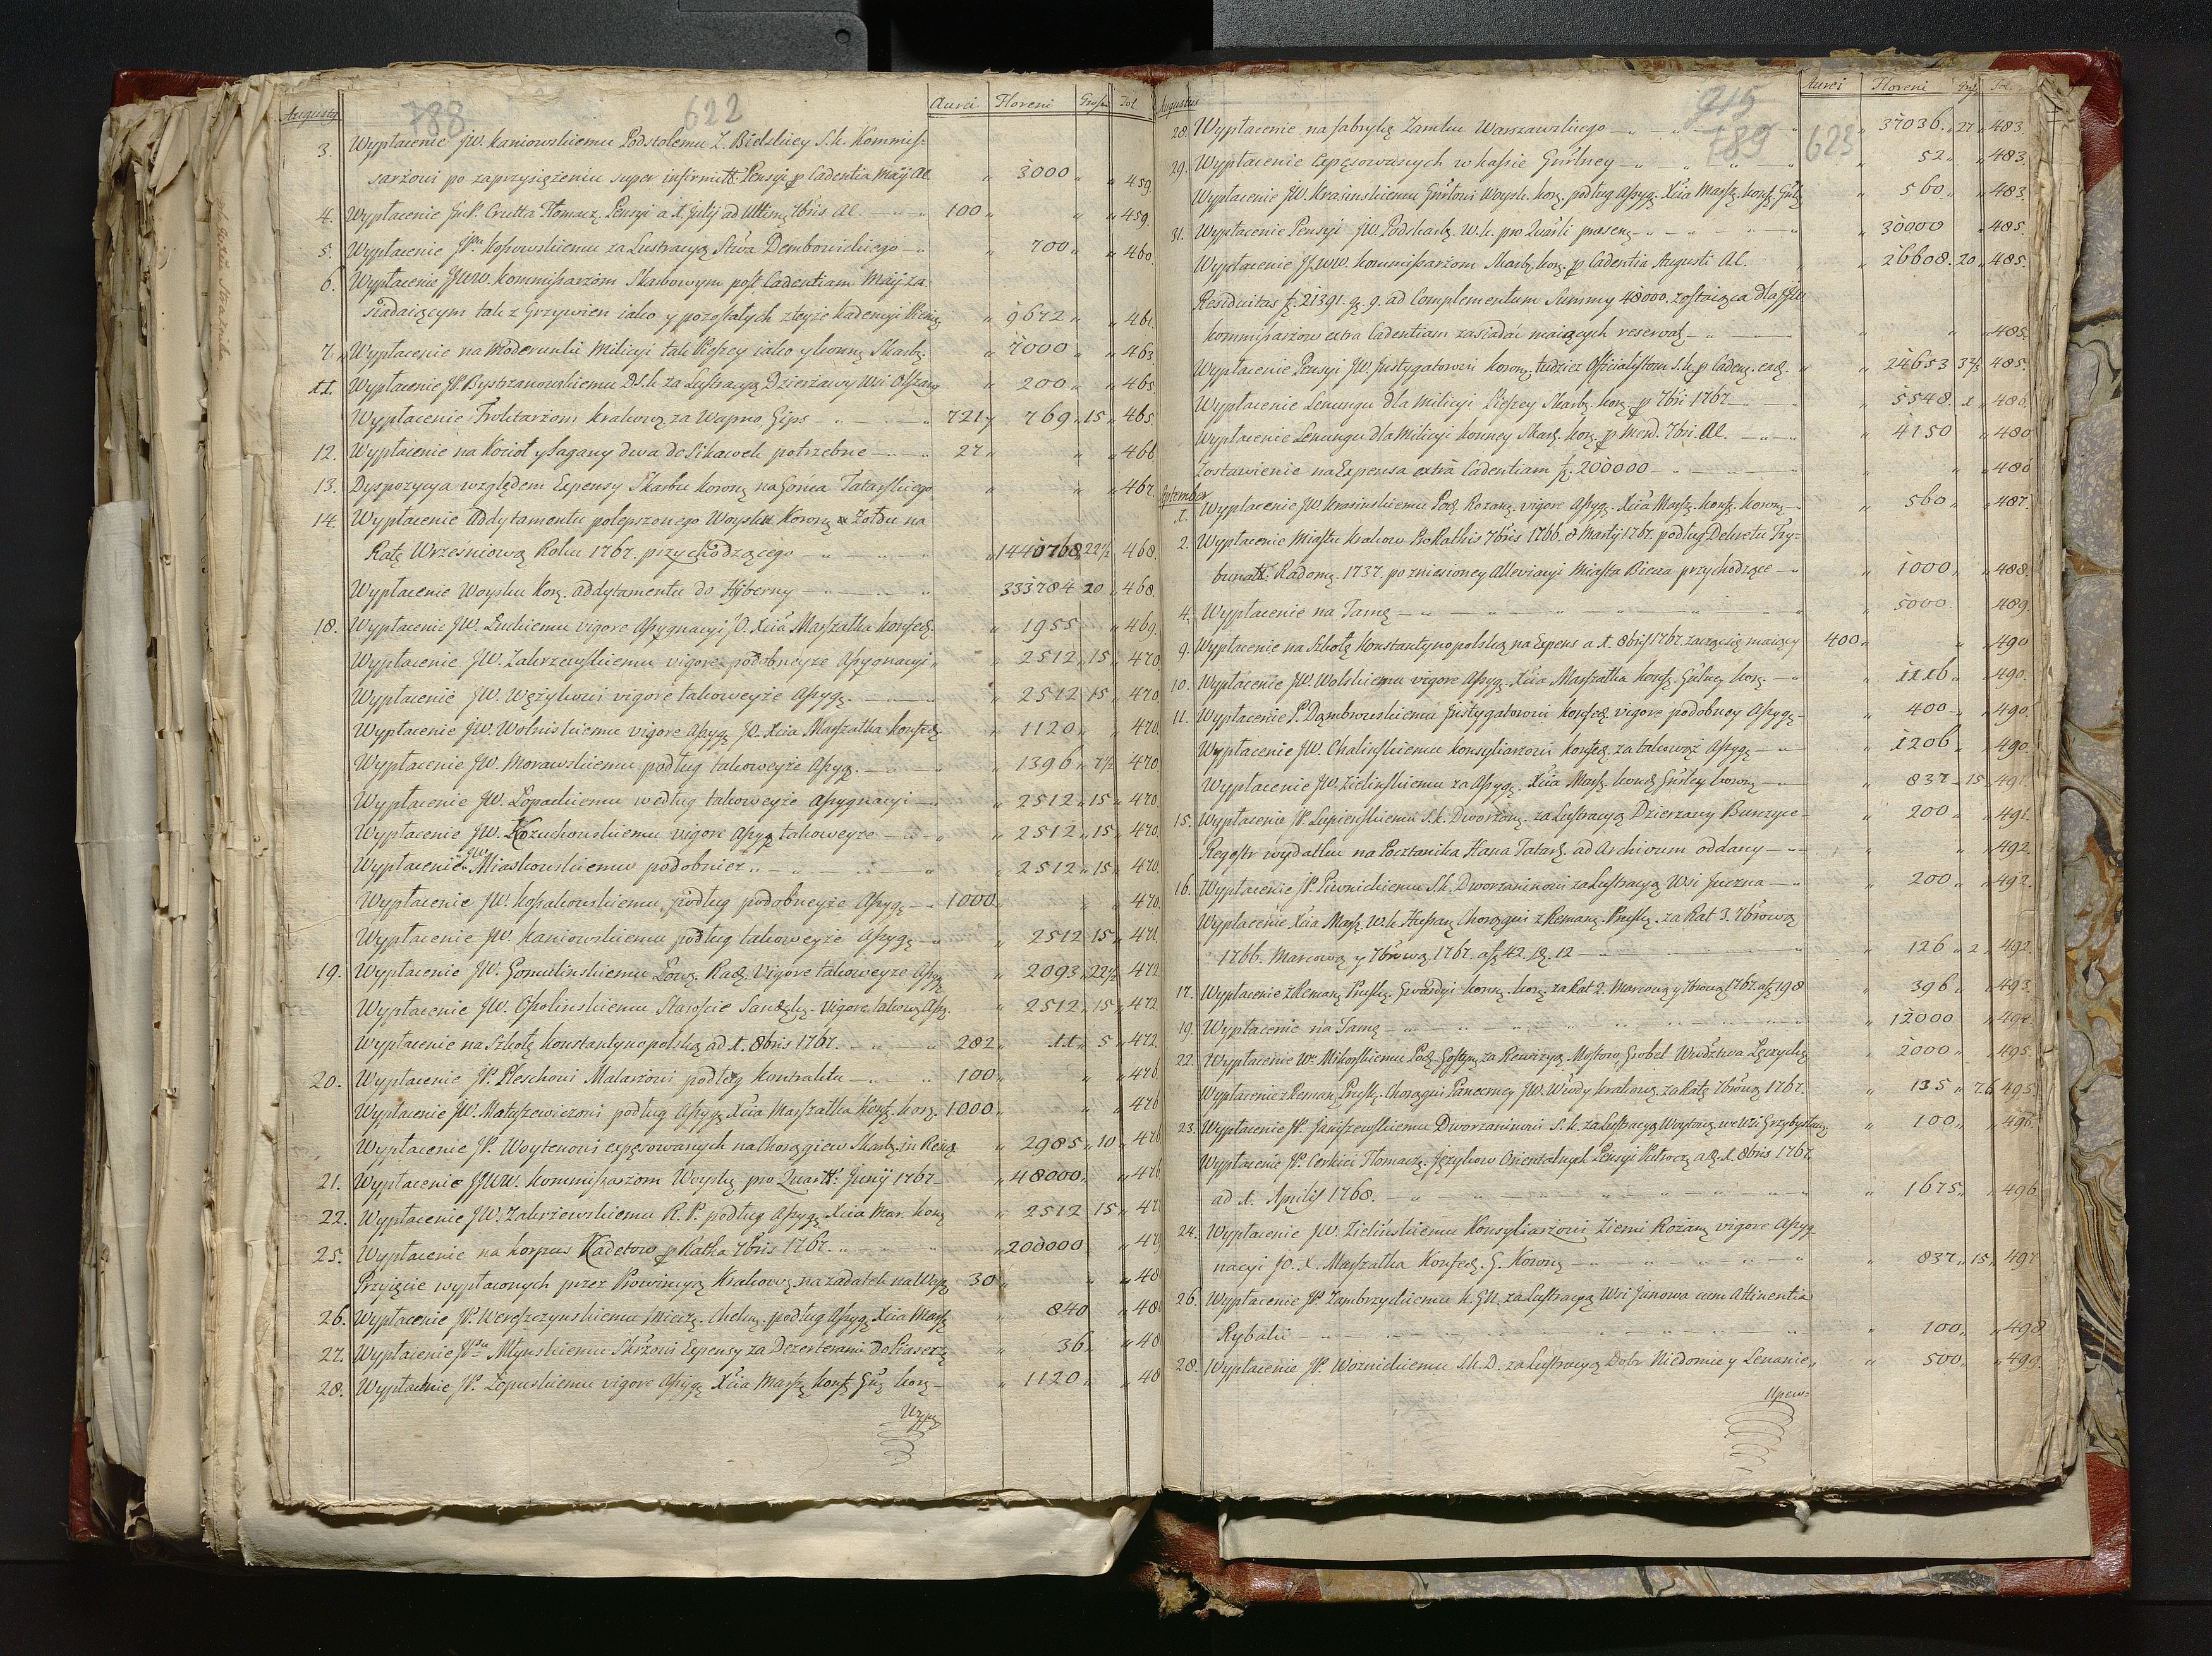 Augusty 788 622 Aurei Floreni Grossi Fol.
3. Wypłacenie JW. Kaniowskiemu Podstolemu Z. Bielskiey S. k. Kommis-
sarżowi po zaprzysiężeniu super infirmitt. Pensyi p Cadentia Maij Al. „ 3000 „ „ 459.
4. Wypłacenie Crutta Tłomacz. Pensyi a 1. Julij ad Ultimą 7bris Al. 100 „ „ „ 459.
5. Wypłacenie Kossowskiemu za Lustracyą Stwa Dembowickiego „ 700 „ „ 460
6. Wypłacenie JJWW. Kommissarżom Skarbowym post Cadentiam Maij za
siadaiącym tak z Grzywien iako y pozostałych z teyże „ 9672 „ „ 461.
7. Wypłacenie na Moderunki Milicyi tak Pieszey iako y konną Skarb. „ 7000 „ „ 463
11. Wypłacenie JP. Bystrzanowskiemu D S. k. za Lustracyą Dzierżawy Wsi „ 200 „ „ 465
Wypłacenie Krakową za Wapno Gips 721 „ 769 „ 15 „ 465.
12. Wypłacenie na Kocioł y Sagany dwa do Sikawek potrzebne 27 „ „ „ 466
13. Dyspozycya względem Expensy Skarbu Koroną na Gońca Tatarskiego „ „ „ 467.
14. Wypłacenie Addytamentu polepszonego Woysku Koroną Żołdu na
Ratę Wrześniową Roku 1767. przychodzącego „ 1440768 22½ 468.
Wypłacenie Woysku Korą. addytamentu do Hyberny 333784 20 „ 468.
18. Wypłacenie JW. Luckiemu vigore Assygnacyi J.O. Xcia Marszałka Konfed. „ 1955 „ 469.
Wypłacenie JW. Zakrzewskiemu vigore podobneyże Assygnacyi „ „ 2512 „ 15 „ 470
Wypłacenie JW. Wężykowi vigore takoweyże Assyg. „ 2512 15 „ 470.
Wypłacenie JW. Wolniskiemu vigore Assyg. JO. Xcia Marszałka Konfed. „ 1120 „ „ 470.
Wypłacenie JW. Morawskiemu podług takoweyże Assyg. „ 1396 „ 7½ 470
Wypłacenie JW. Łopackiemu według takoweyże Assygnacyi „ 2512 „ 15 „ 470.
Wypłacenie JW. Kozuchowskiemu vigore Assyg. takoweyże „ 2512 „ 15 „ 470.
Wypłacenie JW. Miaskowskiemu podobnież „ 2512 „ 15 „ 470.
Wypłacenie JW. Kossakowskiemu podług podobneyże Assyg. 1000 „ „ 470.
Wypłacenie JW. Kaniowskiemu podług takoweyże Assyg. „ 2512 15 „ 471.
19. Wypłacenie JW. Gomulinskiemu Łow. Rad. Vigore takoweyże Assyg. „ 2093 „ 22½ 472
Wypłacenie JW. Staroście Vigore takow. Assyg. „ 2512 „ 15 „ 472.
Wypłacenie na Szkołę Konstantynopolską ad 1. 8bris 1767. 282 „ 11 „ 5 „ 472
20. Wypłacenie JP. Pleschowi Malarżowi podług kontraktu 100 „ „ „ 476
Wypłacenie JW. Matuszewiczowi podług Assyg. Xcia Marszałka Konf. korą. 1000 „ „ „ 476
Wypłacenie JP. Woytenowi expęsowanych na Chorągiew Skarb. „ 2985 „ 10 „ 476
21. Wypłacenie JJWW. Kommissarżom Woysk. pro Quartt: Junij 1767 „ 48000 „ „ 476
22. Wypłacenie JW. Zakrzewskiemu R. P. podług Assyg. Xcia Mar. korą „ 2512 15 „ 47
25. Wypłacenie na Korpus Kadetow p Ratha 7bris 1767. „ 200000 „ 47
Przyięcie wypłaconych przez Prowincyą Krakową. na zadatek na Wap. 30 „ „ „ 48
26. Wypłacenie JP. Wereszczynskiemu Miecz. Chełm. podług Assyg. Xcia Mars. „ 840 „ 48
27. Wypłacenie Młynskiemu Expensy za Dezerterami do Piaseczn. „ 36 „ „ 48
28. Wypłacenie JP. Łopuskiemu vigore Assyg. Xcia Marsz. konf. korą „ 1120 „ „ 48
Augustus 915 789 623 Aurei Floreni Fol.
28. Wypłacenie na fabrykę Zamku Warszawskiego „ 37036 „ 27 „ 483.
29. Wypłacenie Expęsowanych w kassie „ 52 „ „ 483.
Wypłacenie JW. Krasinskiemu Woysk. korą. podług Assyg. Xcia Marsz. Konf. „ 560 „ „ 483
31. Wypłacenie Pensyi JW. Podskarb. W. k. pro „ 30000 „ 485.
Wypłacenie JJWW. Kommissarżom Skarb. korą. p Cadentia Augusti Al. „ 26608. 20 „ 485.
Residuitas f. 21391. g. 9. ad Complementum Summy 48000. zostaiąca dla JJW.
Kommissarżow extra Cadentiam zasiadać maiących reservat. „ „ „ 485.
Wypłacenie Pensyi JW. Instygatorowi koroną. tudzież Officialistom S. k. p Caden. ead. „ 24653 3⅔ 485.
Wypłacenie Lenungu dla Milicyi Pieszey Skarb. korą. p 7bri 1767 „ 5548. 1 „ 486
Wypłacenie Lenungu dla Milicyi konney Skarb. korą. p Men. 7bri. Al. „ 4150 „ 486
Zostawienie na Expensa extra Cadentiam f. 200000 „ „ „ 486
September
1. Wypłacenie JW. Krasinskiemu Pod. Rozan. vigore Assyg. Xcia Marsz. Konf. koroną „ 560 „ „ 487.
2. Wypłacenie Miastu Krakow. Pro Rathis 7bris 1766. & Martij 1767. podług Dekretu Try-
bunatt: Radomą. 1737. po zniesioney Alleviacyi Miasta Biecza przychodzące „ 1000 „ „ 488.
4. Wypłacenie na Tamę „ 5000. 489.
9. Wypłacenie na Szkołę Konstantynopolską na Expens a 1. 8bris 1767. zacząć się maiący 400 „ „ „ 490
10. Wypłacenie JW. Wolskiemu vigore Assyg. Xcia Marszałka Konf. korą. „ 1116 „ „ 490.
11. Wypłacenie P. Dąmbrowskiemu Instygatorowi Konfed. vigore podobney Assyg. „ 400 „ 490
Wypłacenie JW. Chalińskiemu Konsyliarzowi Konfed. za takowąż Assyg. „ 1206 „ „ 490.
Wypłacenie JW. Zielińskiemu za Assyg. Xcia Marsz. koroną „ 837 „ 15 „ 491.
15. Wypłacenie JP. Łupieńskiemu S. k. Dworzan. za Lustracyą Dzierżawy „ 200 „ „ 491.
Regestr wydatku na Posłanika Hana Tatar. ad Archivum oddany „ „ „ 492
16. Wypłacenie JP. Piwnickiemu S. k. Dworzaninowi za Lustracyą Wsi Juczna „ 200 „ „ 492.
Wypłacenie Xcia Marsz. W. k. Hussar. Chorągwi z Reman. Prusk. za Rat 3. 7brową
1766. Marcową y 7brową 1767. a f. 42. g. 12 „ 126 „ 2 „ 492.
17. Wypłacenie z Reman. Prusk. Gwardyi konną. korą. za Rat 2. Marcową y 7brową 1767. a f. 198 „ 396 „ „ 493.
19. Wypłacenie na Tamę „ 12000 „ 494.
22. Wypłacenie W. Mikorskiemu Pod. Gostyn. za Rewizyą Mostow, Grobel Wwództwa Łęczyck. „ 2000 „ „ 495.
Wypłacenie z Reman. Prusk. Chorągwi Pancerney JW. Wwdy Krakową. za Ratę 7brową 1767. „ 135 „ 26 495
23. Wypłacenie JP. Janiszewskiemu Dworzaninowi S. k. za Lustracyą Woytową. we Wsi „ 100 „ „ 496.
Wypłacenie JP. Tłomacz. Językow Orientalnych Pensyi Pułrocz. ad. 1. 8bris 1767.
ad 1. Aprilis 1768. „ 1675 „ „ 496
24. Wypłacenie JW. Zielińskiemu Konsyliarżowi Ziemi Rożan. vigore Assyg-
nacyi JO. X. Marszałka Konfed. G. Koroną „ 837 „ 15 „ 497
26. Wypłacenie JP. Zambrzyckiemu za Lustracyą Wsi Janowa cum Attinentia
Rybaki „ 100 „ „ 498
28. Wypłacenie JP. Woznickiemu Sk. D. za Lustracyą Dobr Niedomic y „ 500 „ „ 499.